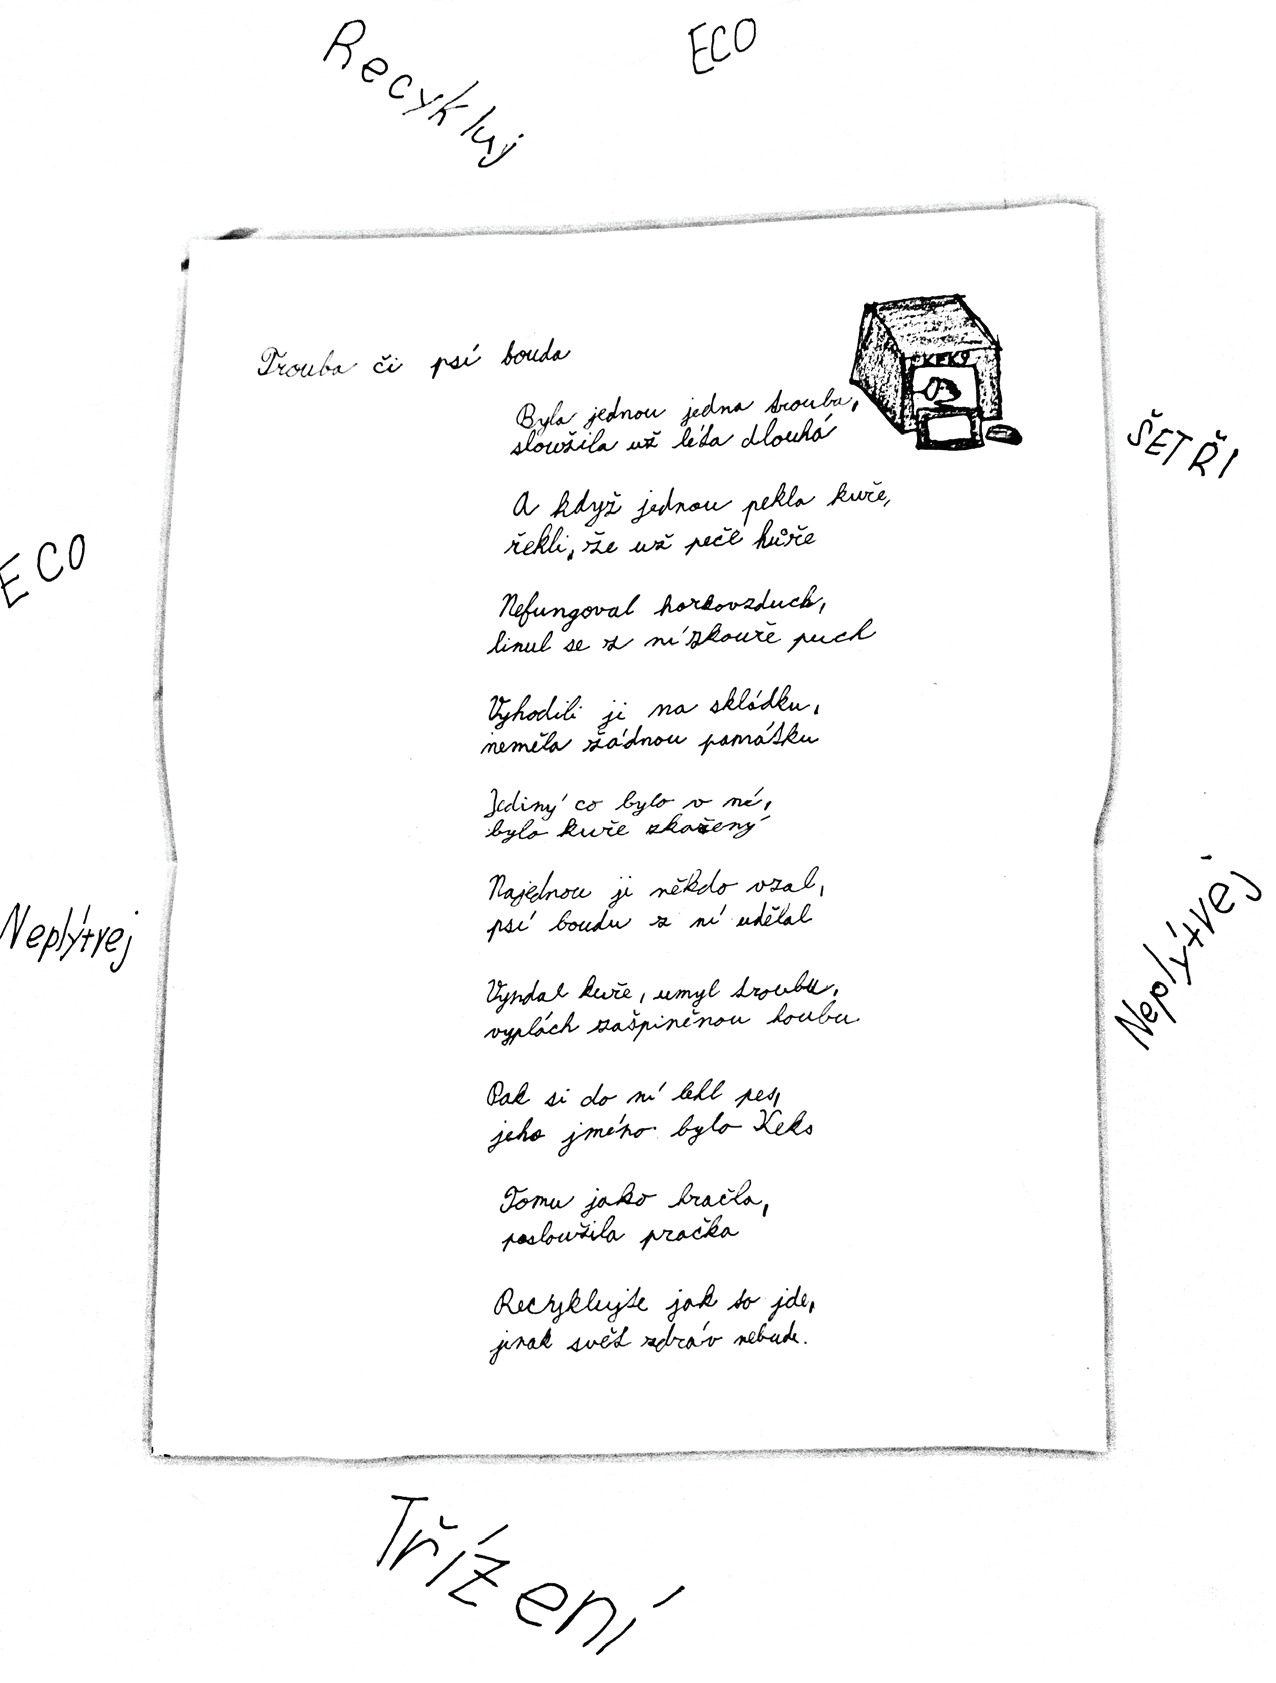 Recykluj
ECO
Trouba či psí bouda
KEKS
Byla jednou jedna trouba,
sloužila už léta dlouhá
ŠETŘI
A když jednou pekla kuře,
řekli, že už peče hůře
ECO
Nefungoval horkovzduch,
linul se z ní zkouře puch
Vyhodili ji na skládku,
neměla žádnou památku
Jediný co bylo v ní,
bylo kuře zkažený
Najednou ji někdo vzal,
psí boudu z ní udělal
Neplýtvej
Neplýtvej
Vyndal kuře, umyl troubu,
vyplách zašpiněnou houbu
Pak si do ní lehl pes,
jeho jméno bylo Keks
Tomu jako hračka,
posloužila pračka
Recyklujte jak to jde,
jinak svět zdráv nebude.
Třízení